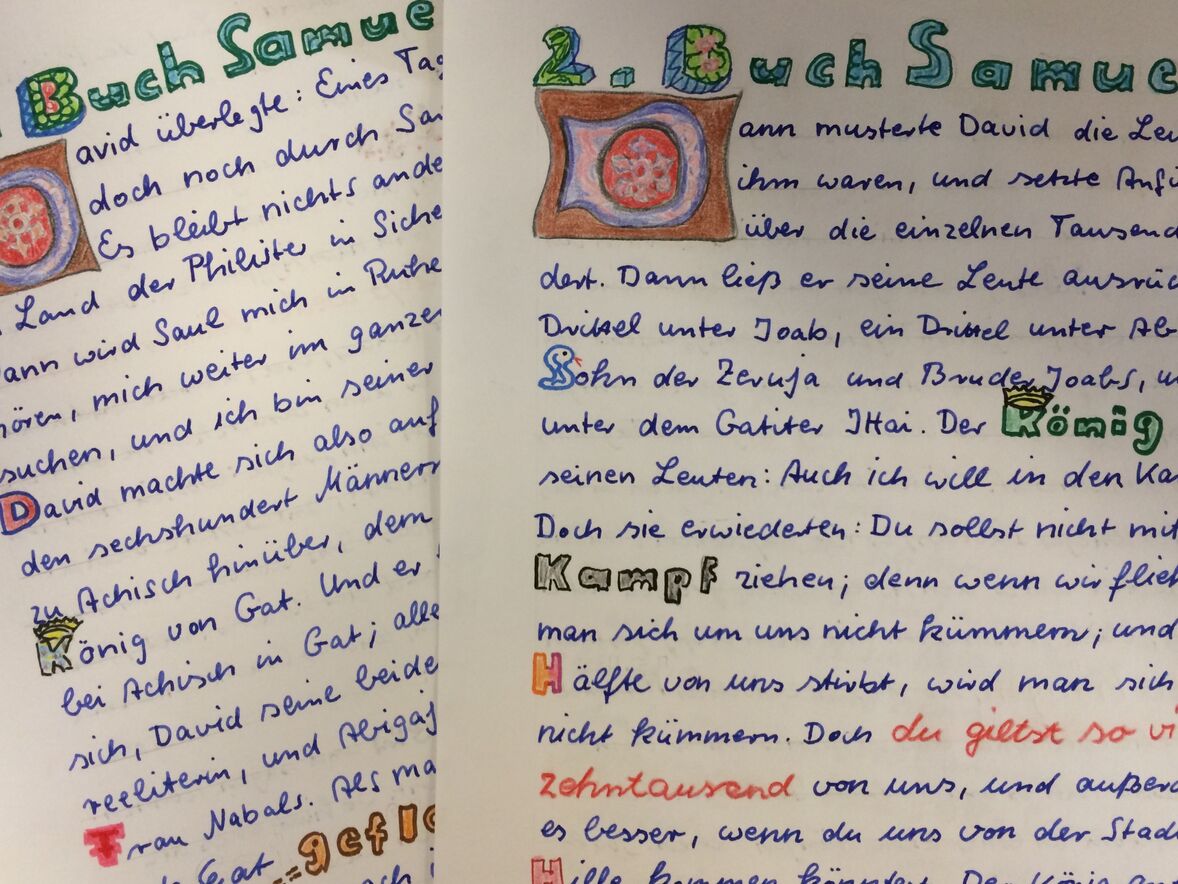 Buch Samue
David überlegte: Eines Tag
doch noch durch Sa
Es bleibt nichts ande
Land der Philister in Siche
ann wird Saul mich in Ruhe
hören, mich weiter im ganze
suchen, und ich bin seiner
David machte sich also auf
den sechshundert Männern
zu Achisch hinüber, dem
König von Gat. Und er
bei Achisch in Gat; alle
sich, David seine beide
reeliterin, und Abigaj
Frau Nabals. Als ma
Gat gefl
2. Buch Samue
Dann musterte David die Leu
ihm waren, und setzte Anfü
über die einzelnen Tausend
dert. Dann ließ er seine Leute ausrüc
Drittel unter Joab, ein Drittel unter Ab
Sohn der Zeruja und Bruder Joabs, u
unter dem Gatiter Ittai. Der König
seinen Leuten: Auch ich will in den Ka
Doch sie erwiederten: Du sollst nicht mit
Kampf ziehen; denn wenn wir flieh
man sich um uns nicht kümmern; und
Hälfte von uns stirbt, wird man sich
nicht kümmern. Doch du giltst so vi
zehntausend von uns, und außerd
es besser, wenn du uns von der Stad
Hilfe kommen könntest. Der König